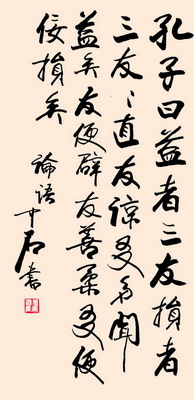 孔子曰益者三友損者
三友〻直友諒友多聞
益矣友便辟友善柔友便
佞損矣
論語
中石書